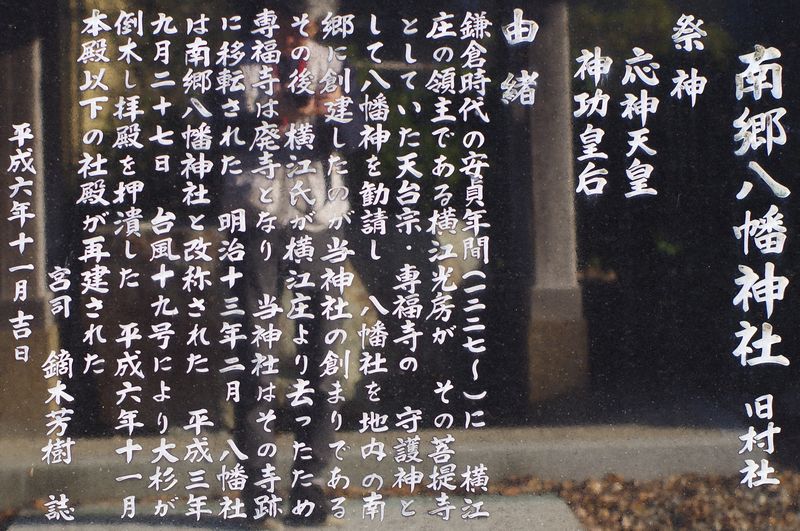 南郷八幡神社 旧村社
祭神
応神天皇
神功皇后
由緒
鎌倉時代の安貞年間(一二二七〜)に 横江
庄の領主である横江光房が その菩提寺
としていた天台宗・専福寺の 守護神と
して八幡神を勧請し 八幡社を地内の南
郷に創建したのが当神社の創まりである
その後 横江氏が横江庄より去ったため
専福寺は廃寺となり 当神社はその寺跡
に移転された 明治十三年二月 八幡社
は南郷八幡神社と改称された 平成三年
九月二十七日 台風十九号により大杉が
倒木し拝殿を押潰した 平成六年十一月
本殿以下の社殿が再建された
宮司 鏑木芳樹 誌
平成六年十一月吉日